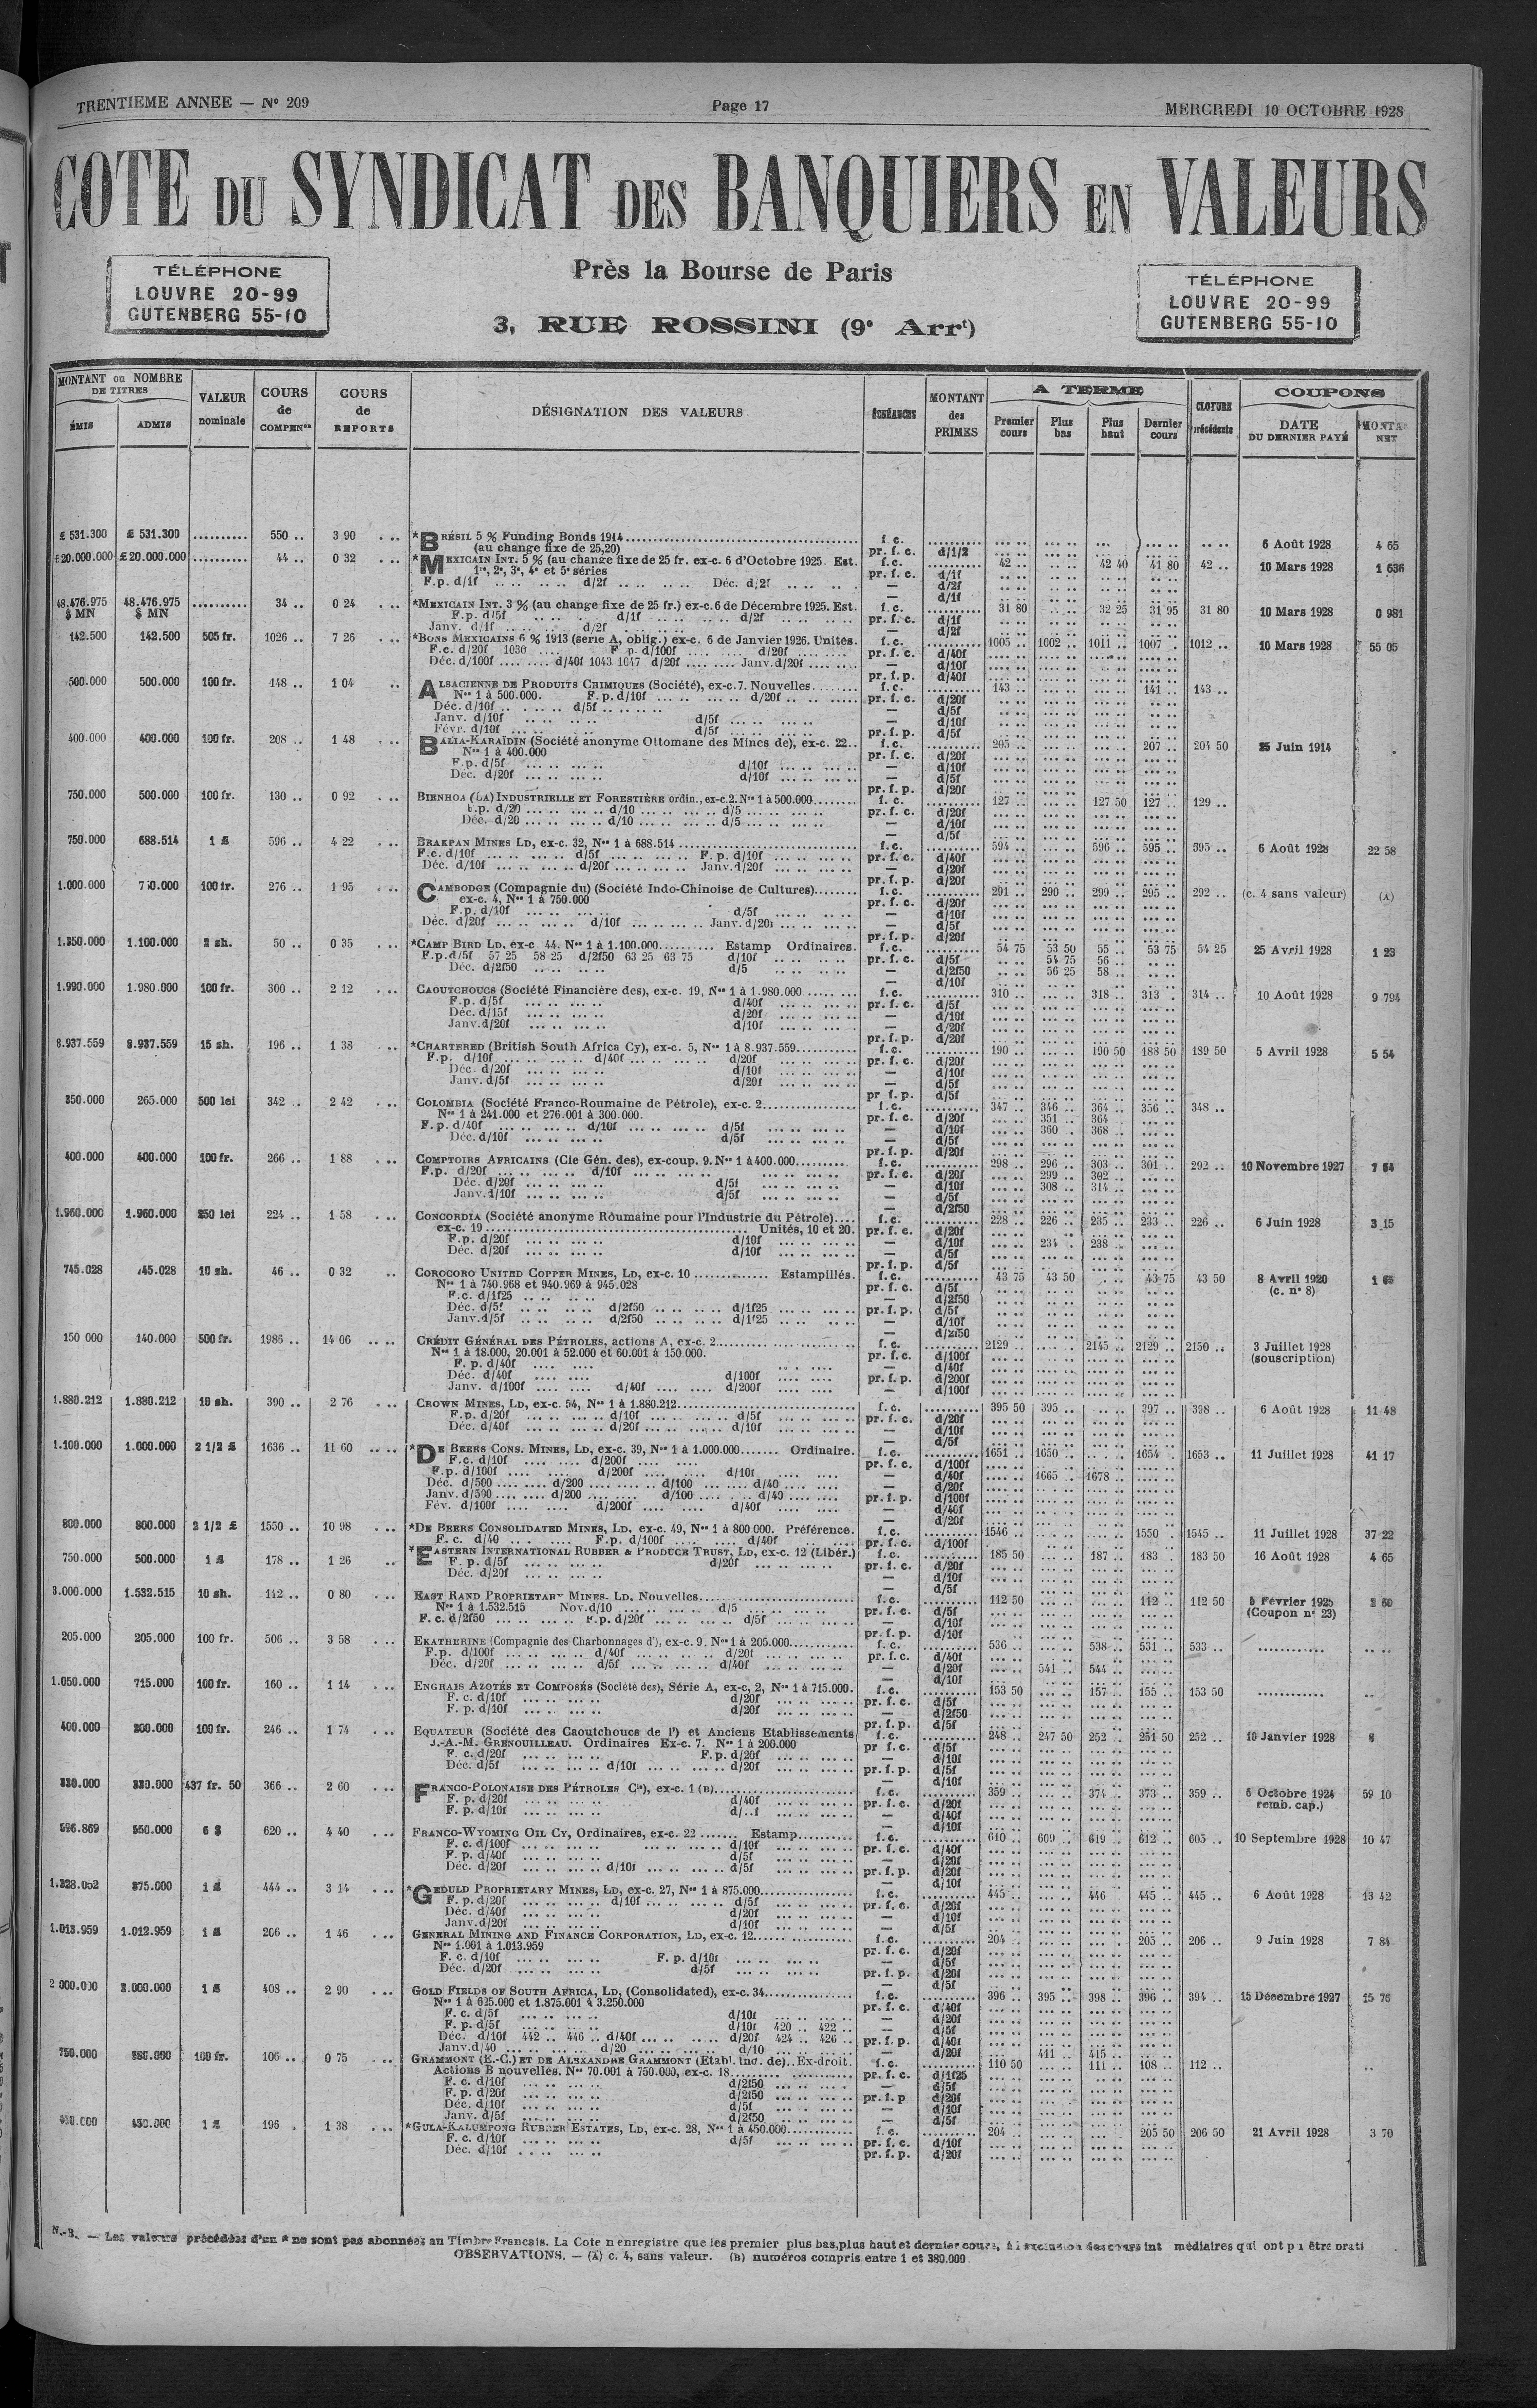 TRENTIEME ANNEE — Nº 209
Page 17
MERCREDI 10 OCTOBRE 1928
COTE DU SYNDICAT DES BANQUIERS EN VALEURS
TÉLÉPHONE
LOUVRE 20-99
GUTENBERG 55-10
Près la Bourse de Paris
3, RUE ROSSINI (9e Arrt)
TÉLÉPHONE
LOUVRE 20-99
GUTENBERG 55-10
MONTANT ou NOMBRE DE TITRES
ÉMIS
ADMIS
VALEUR nominale
COURS de COMPENon
COURS de REPORTS
DÉSIGNATION DES VALEURS
ÉCHÉANCES
MONTANT des PRIMES
A TERME
Premier cours
Plus bas
Plus haut
Dernier cours
CLOTURE précédente
COUPONS
DATE DU DERNIER PAYÉ
NET
£ 531.300 £ 531.300 .......... 550 .. 3 90 *BRÉSIL 5 % Funding Bonds 1914 f. c. 6 Août 1928 4 65
(au change fixe de 25,20) pr. f. c. d/1/2
£20.000.000 £20.000.000 .......... 44 .. 0 32 *MEXICAIN INT. 5 % (au change fixe de 25 fr. ex-c. 6 d'Octobre 1925. Est. f. c. 42 .. 42 40 41 80 42 .. 10 Mars 1928 1 636
1re, 2e, 3e, 4e et 5e séries pr. f. c. d/1f
F.p. d/1f d/2f Déc. d/2f — d/2f
48.476.975 $ MN 48.476.975 $ MN .......... 34 .. 0 24 *MEXICAIN INT. 3 % (au change fixe de 25 fr.) ex-c. 6 de Décembre 1925. Est. f. c. 31 80 32 25 31 95 31 80 10 Mars 1928 0 981
F.p. d/5f d/1f d/2f pr. f. c. d/1f
Janv. d/1f d/2f — d/2f
142.500 142.500 505 fr. 1026 .. 7 26 *BONS MEXICAINS 6 % 1913 (série A, oblig.) ex-c. 6 de Janvier 1926. Unités. f. c. 1005 .. 1002 .. 1011 .. 1007 . 1012 .. 10 Mars 1928 55 05
F.c. d/20f 1036 F.p. d/100f d/20f pr. f. c. d/40f
Déc. d/100f d/40f 1043 1047 d/20f Janv. d/20f — d/10f
pr. f. p. d/40f
500.000 500.000 100 fr. 148 .. 1 04 ALSACIENNE DE PRODUITS CHIMIQUES (Société), ex-c. 7. Nouvelles f. c. 143 .. 141 .. 143 ..
Nos 1 à 500.000. F.p. d/10f d/20f pr. f. c. d/20f
Déc. d/10f d/5f — d/5f
Janv. d/10f d/5f — d/10f
Févr. d/10f d/5f pr. f. p. d/5f
400.000 400.000 100 fr. 208 .. 1 48 BALIA-KARAÏDIN (Société anonyme Ottomane des Mines de), ex-c. 22 f. c. 205 .. 207 .. 204 50 25 Juin 1914
Nos 1 à 400.000 pr. f. c. d/20f
F.p. d/5f d/10f — d/10f
Déc. d/20f d/10f — d/5f
pr. f. p. d/20f
750.000 500.000 100 fr. 130 .. 0 92 BIENHOA (LA) INDUSTRIELLE ET FORESTIÈRE ordin., ex-c. 2. Nos 1 à 500.000 f. c. 127 .. 127 50 127 .. 129 ..
F.p. d/20 d/10 d/5 pr. f. c. d/20f
Déc. d/20 d/10 d/5 — d/10f
— d/5f
750.000 688.514 1 £ 596 .. 4 22 BRAKPAN MINES LD, ex-c. 32, Nos 1 à 688.514 f. c. 594 .. 596 .. 595 .. 595 .. 6 Août 1928 22 58
F.c. d/10f d/5f F.p. d/10f pr. f. c. d/40f
Déc. d/10f d/20f Janv. d/20f — d/20f
pr. f. p. d/20f
1.000.000 100 fr. 276 .. 1 95 CAMBODGE (Compagnie du) (Société Indo-Chinoise de Cultures) f. c. 291 .. 290 .. 299 .. 295 .. 292 .. (c. 4 sans valeur) (A)
ex-c. 4, Nos 1 à 750.000 pr. f. c. d/20f
F.p. d/10f d/5f — d/10f
Déc. d/20f d/10f Janv. d/20f — d/5f
pr. f. p. d/20f
1.350.000 1.100.000 2 sh. 50 .. 0 35 *CAMP BIRD LD, ex-c. 44. Nos 1 à 1.100.000 Estamp Ordinaires. f. c. 54 75 53 50 55 .. 53 75 54 25 25 Avril 1928 1 23
F.p. d/5f 57 25 58 25 d/2f50 63 25 63 75 d/10f pr. f. c. d/5f 54 75 56 ..
Déc. d/2f50 d/5 — d/2f50 56 25 58 ..
— d/10f
1.990.000 1.980.000 100 fr. 300 .. 2 12 CAOUTCHOUCS (Société Financière des), ex-c. 19, Nos 1 à 1.980.000 f. c. 310 .. 318 .. 313 . 314 .. 10 Août 1928 9 794
F.p. d/5f d/40f pr. f. c. d/5f
Déc. d/15f d/20f — d/10f
Janv. d/20f d/10f — d/20f
pr. f. p. d/20f
8.937.559 8.937.559 15 sh. 196 .. 1 38 *CHARTERED (British South Africa Cy), ex-c. 5, Nos 1 à 8.937.559 f. c. 190 .. 190 50 188 50 189 50 5 Avril 1928 5 54
F.p. d/10f d/40f d/20f pr. f. c. d/20f
Déc. d/20f d/10f — d/10f
Janv. d/5f d/20f — d/5f
pr f. p. d/5f
350.000 265.000 500 lei 342 .. 2 42 COLOMBIA (Société Franco-Roumaine de Pétrole), ex-c. 2 f. c. 347 .. 346 .. 364 .. 356 .. 348 ..
Nos 1 à 241.000 et 276.001 à 300.000. pr. f. c. d/20f 351 .. 364 ..
F.p. d/40f d/10f d/5f — d/10f 360 .. 368 ..
Déc. d/10f d/5f — d/5f
pr. f. p. d/20f
400.000 400.000 100 fr. 266 .. 1 88 COMPTOIRS AFRICAINS (Cie Gén. des), ex-coup. 9. Nos 1 à 400.000 f. c. 298 .. 296 .. 303 .. 301 .. 292 .. 10 Novembre 1927
F.p. d/20f d/10f pr. f. c. d/20f 299 .. 302 ..
Déc. d/20f d/5f — d/10f 308 .. 314 ..
Janv. d/10f d/5f — d/5f
— d/2f50
1.960.000 1.960.000 250 lei 224 .. 1 58 CONCORDIA (Société anonyme Roumaine pour l'Industrie du Pétrole) f. c. 228 .. 226 .. 235 .. 233 .. 226 .. 6 Juin 1928 3 15
ex-c. 19 Unités, 10 et 20. pr. f. c. d/20f
F.p. d/20f d/10f — d/10f 234 . 238 ..
Déc. d/20f d/10f — d/5f
pr. f. p. d/5f
745.028 745.028 10 sh. 46 .. 0 32 COROCORO UNITED COPPER MINES, LD, ex-c. 10 Estampillés. f. c. 43 75 43 50 43 75 43 50 8 Avril 1920
Nos 1 à 740.968 et 940.969 à 945.028 pr. f. c. d/5f (c. nº 8)
F.c. d/1f25 — d/2f50
Déc. d/5f d/2f50 d/1f25 pr. f. p. d/5f
Janv. d/5f d/2f50 d/1f25 — d/10f
— d/2f50
150 000 140.000 500 fr. 1986 .. 14 06 CRÉDIT GÉNÉRAL DES PÉTROLES, actions A, ex-c. 2 f. c. 2129 .. 2145 .. 2129 .. 2150 .. 3 Juillet 1928
Nos 1 à 18.000, 20.001 à 52.000 et 60.001 à 150.000. pr. f. c. d/100f (souscription)
F. p. d/40f — d/40f
Déc. d/40f d/100f pr. f. p. d/200f
Janv. d/100f d/40f d/200f — d/100f
1.880.212 1.880.212 10 sh. 390 .. 2 76 CROWN MINES, LD, ex-c. 54, Nos 1 à 1.880.212 f. c. 395 50 395 .. 397 .. 398 .. 6 Août 1928 11 48
F.p. d/20f d/10f d/5f pr. f. c. d/20f
Déc. d/40f d/20f d/10f — d/10f
— d/5f
1.100.000 1.000.000 2 1/2 £ 1636 .. 11 60 *DE BEERS CONS. MINES, LD, ex-c. 39, Nos 1 à 1.000.000 Ordinaire. f. c. 1651 .. 1650 .. 1654 . 1653 .. 11 Juillet 1928 41 17
F.c. d/10f d/200f pr. f. c. d/100f
F.p. d/100f d/200f d/10f — d/40f 1665 .. 1678 ..
Déc. d/500 d/200 d/100 d/40 — d/20f
Janv. d/500 d/200 d/100 d/40 pr. f. p. d/100f
Fév. d/100f d/200f d/40f — d/40f
— d/20f
800.000 800.000 2 1/2 £ 1550 .. 10 98 *DE BEERS CONSOLIDATED MINES, LD. ex-c. 49, Nos 1 à 800.000. Préférence. f. c. 1546 .. 1550 . 1545 .. 11 Juillet 1928 37 22
F. c. d/40 F.p. d/100f d/40f pr. f. c. d/100f
750.000 500.000 1 £ 178 .. 1 26 *EASTERN INTERNATIONAL RUBBER & PRODUCE TRUST, LD, ex-c. 12 (Libér.) f. c. 185 50 187 .. 183 . 183 50 16 Août 1928 4 65
F. p. d/5f d/20f pr. f. c. d/20f
Déc. d/20f — d/10f
— d/5f
3.000.000 1.532.515 10 sh. 112 .. 0 80 EAST RAND PROPRIETARY MINES. LD. Nouvelles f. c. 112 50 112 .. 112 50 5 Février 1925 2 60
Nos 1 à 1.532.515 Nov. d/10 d/5 pr. f. c. d/5f (Coupon nº 23)
F. c. d/2f50 F.p. d/20f d/5f — d/10f
pr. f. p. d/10f
205.000 205.000 100 fr. 506 .. 3 58 EKATHERINE (Compagnie des Charbonnages d'), ex-c. 9. Nos 1 à 205.000 f. c. 536 .. 538 .. 531 .. 533 .. ............
F.p. d/100f d/40f d/20f pr. f. c. d/40f
Déc. d/20f d/5f d/40f — d/20f 541 .. 544 ..
— d/10f
1.050.000 715.000 100 fr. 160 .. 1 14 ENGRAIS AZOTÉS ET COMPOSÉS (Société des), Série A, ex-c, 2, Nos 1 à 715.000. f. c. 153 50 157 .. 155 .. 153 50 ............
F. c. d/10f d/20f pr. f. c. d/5f
F. p. d/10f d/20f — d/2f50
pr. f. p. d/5f
400.000 200.000 100 fr. 246 .. 1 74 EQUATEUR (Société des Caoutchoucs de l') et Anciens Etablissements f. c. 248 .. 247 50 252 . 251 50 252 .. 10 Janvier 1928 8
J.-A.-M. GRENOUILLEAU. Ordinaires Ex-c. 7. Nos 1 à 200.000 pr f. c. d/5f
F. c. d/20f F.p. d/20f — d/10f
Déc. d/5f d/10f d/20f pr. f. p. d/5f
— d/10f
330.000 330.000 437 fr. 50 366 .. 2 60 FRANCO-POLONAISE DES PÉTROLES Cie), ex-c. 1 (B) f. c. 359 .. 374 .. 373 .. 359 .. 5 Octobre 1924 59 10
F. p. d/20f d/40f pr. f. c. d/20f remb. cap.)
F. p. d/10f d/..f — d/40f
— d/10f
596.869 550.000 6 $ 620 .. 4 40 FRANCO-WYOMING OIL CY, Ordinaires, ex-c. 22 Estamp f. c. 610 .. 609 .. 619 .. 612 .. 605 .. 10 Septembre 1928 10 47
F. c. d/100f d/10f pr. f. c. d/40f
F. p. d/40f d/5f — d/20f
Déc. d/20f d/10f d/5f pr. f. p. d/20f
— d/10f
1.328.052 875.000 1 £ 444 .. 3 14 *GEDULD PROPRIETARY MINES, LD, ex-c. 27, Nos 1 à 875.000 f. c. 445 .. 446 445 .. 445 .. 6 Août 1928 13 42
F. p. d/20f d/10f d/5f pr. f. c. d/20f
Déc. d/40f d/20f — d/10f
Janv. d/20f d/10f — d/5f
1.013.959 1.012.959 1 £ 206 .. 1 46 GENERAL MINING AND FINANCE CORPORATION, LD, ex-c. 12 f. c. 204 .. 205 .. 206 .. 9 Juin 1928 7 84
Nos 1.001 à 1.013.959 pr. f. c. d/20f
F. c. d/10f F. p. d/10f — d/5f
Déc. d/20f d/5f pr. f. p. d/20f
— d/5f
2 000.000 2.000.000 1 £ 408 .. 2 90 GOLD FIELDS OF SOUTH AFRICA, LD, (Consolidated), ex-c. 34 f. c. 396 .. 395 .. 398 .. 396 .. 394 .. 15 Décembre 1927 15 76
Nos 1 à 625.000 et 1.875.001 à 3.250.000 pr. f. c. d/40f
F. c. d/5f d/10f — d/20f
F. p. d/5f d/10f 420 .. 422 .. — d/5f
Déc. d/10f 442 .. 446 .. d/40f d/20f 424 .. 426 .. pr. f. p. d/40f
Janv. d/40 d/20 d/10 — d/20f 411 .. 415 ..
750.000 100 fr. 106 .. 0 75 GRAMMONT (E.-C.) ET DE ALEXANDRE GRAMMONT (Etabl. Ind. de). Ex-droit. f. c. 110 50 111 .. 108 .. 112 ..
Actions B nouvelles. Nos 70.001 à 750.000, ex-c. 18 pr. f. c. d/1f25
F. c. d/10f d/2f50 — d/5f
F. p. d/20f d/2f50 pr. f. p d/20f
Déc. d/10f d/5f — d/10f
Janv. d/5f d/2f50 — d/5f
450.000 450.000 1 £ 196 . 1 38 *GULA-KALUMPONG RUBBER ESTATES, LD, ex-c. 28, Nos 1 à 450.000 f. c. 204 .. 205 50 206 50 21 Avril 1928 3 70
F. c. d/10f d/5f pr. f. c. d/10f
Déc. d/10f pr. f. p. d/20f
N.-B. — Les valeurs précédées d'un * ne sont pas abonnées au Timbre Français. La Cote n enregistre que les premier plus bas, plus haut et dernier cours, à l'exclusion des cours int médiaires qui ont p être
OBSERVATIONS. — (A) c. 4, sans valeur. (B) numéros compris entre 1 et 380.000.